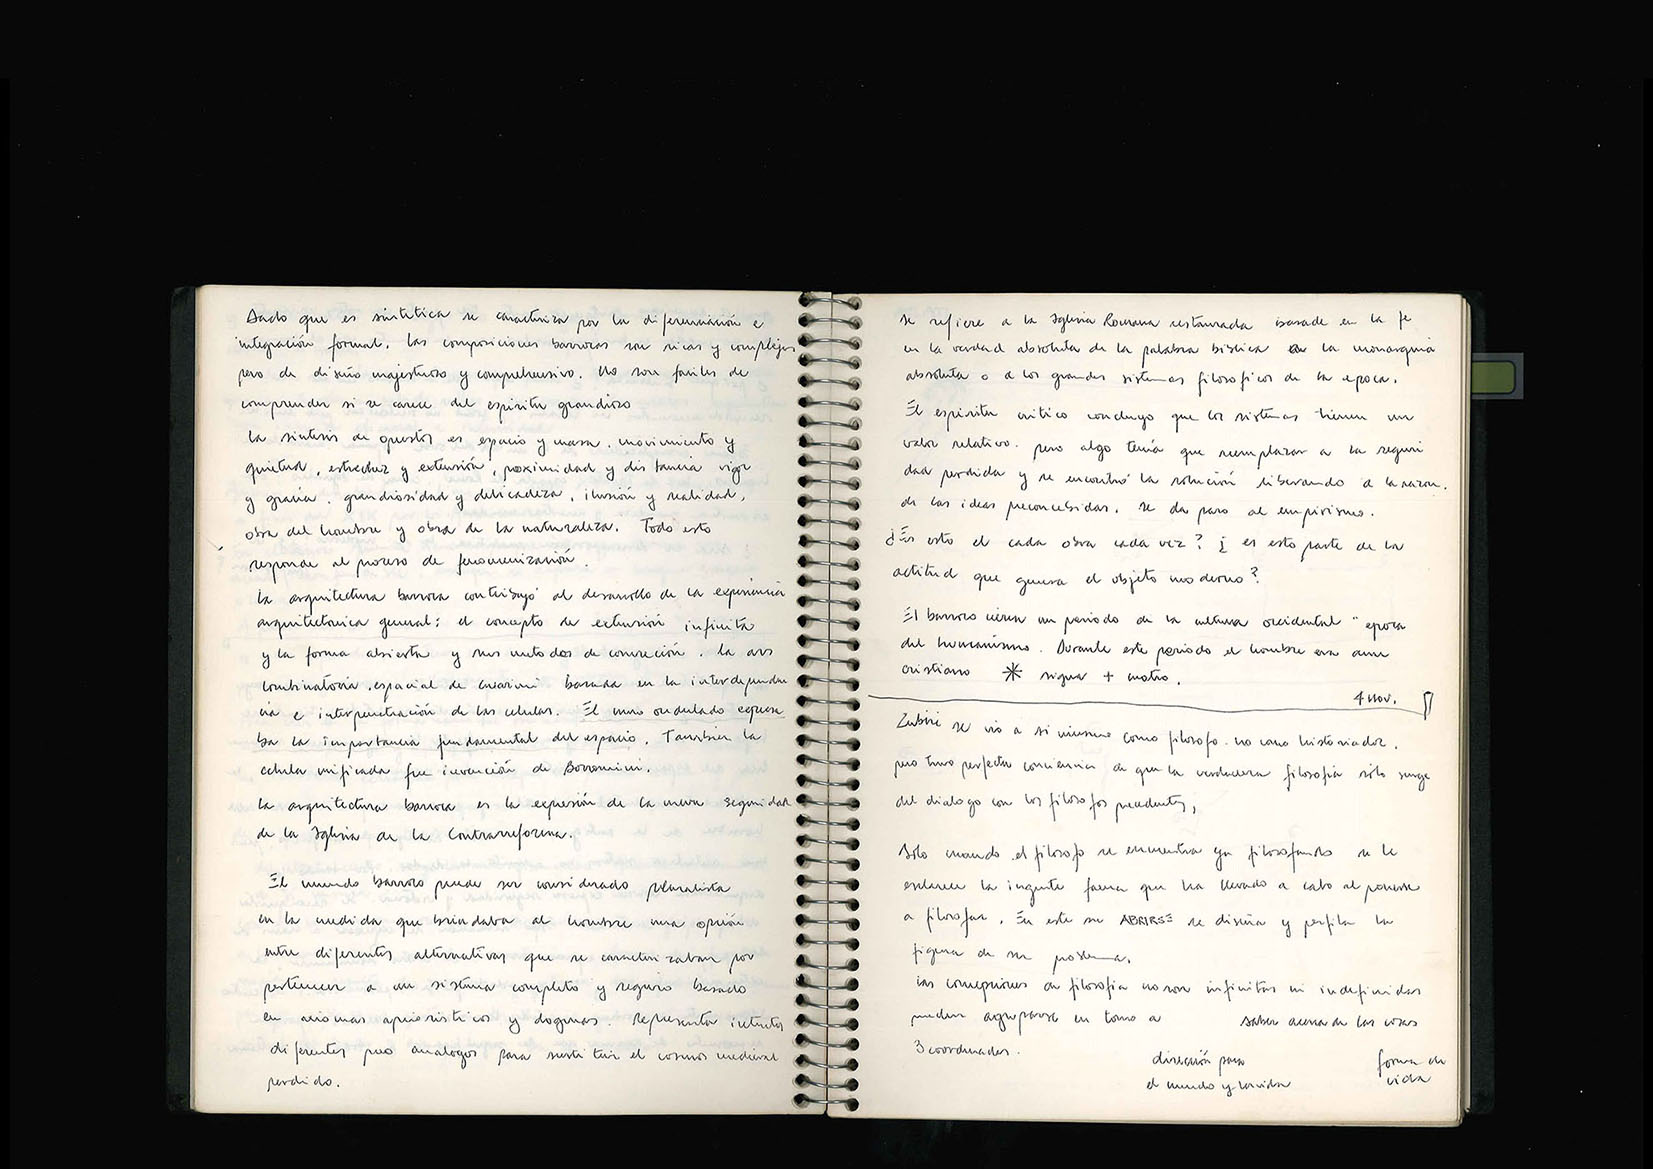 Dado que es sintetica se caracteriza por la diferenciación e
integración formal. Las composiciones barrocas son ricas y complejas
pero de diseño majestuoso y comprehensivo. No son faciles de
comprender si se carece del espiritu grandioso
La sintesis de opuestos es espacio y masa, movimiento y
quietud, estrechez y extensión, proximidad y distancia vigor
y gracia, grandiosidad y delicadeza, ilusión y realidad,
obra del hombre y obra de la naturaleza. Todo esto
responde al proceso de fenomenización.
La arquitectura barroca contribuyó al desarrollo de la experiencia
arquitectonica general: el concepto de extensión infinita
y la forma abierta y sus metodos de concreción. La ars
combinatoria espacial de Guarini basada en la interdependen
cia e interpenetración de las celulas. El muro ondulado expresa
ba la importancia fundamental del espacio. Tambien la
celula unificada fue invención de Borromini.
La arquitectura barroca es la expresión de la nueva seguridad
de la Iglesia de la Contrarreforma.
El mundo barroco puede ser considerado pluralista
en la medida que brindaba al hombre una opción
entre diferentes alternativas que se caracterizaban por
pertenecer a un sistema completo y seguro basado
en axiomas aprioristicos y dogmas. Representa intentos
diferentes pero analogos para sustituir el cosmos medieval
perdido.
se refiere a la Iglesia Romana restaurada basada en la fe
en la verdad absoluta de la palabra biblica en la monarquia
absoluta o a los grandes sistemas filosoficos de la epoca.
El espiritu critico concluyo que los sistemas tienen un
valor relativo. pero algo tenía que reemplazar a la seguri
dad perdida y se encontró la solución liberando a la razon.
de las ideas preconcebidas. se da paso al empirismo.
¿Es esto el cada obra cada vez? ¿ es esto parte de la
actitud que genera el objeto moderno?
El barroco cierra un periodo de la cultura occidental "epoca
del humanismo. Durante este periodo el hombre era aun
cristiano * sigue + cuatro.
4 nov.
Zubiri se vio a si mismo como filosofo no como historiador.
pero tuvo perfecta conciencia de que la verdadera filosofia sólo surge
del dialogo con los filosofos precedentes,
Sólo cuando el filosofo se encuentra ya filosofando se le
esclarece la ingente faena que ha llevado a cabo al ponerse
a filosofar. En este su ABRIRSE se diseña y perfila la
figura de su problema.
Las concepciones de filosofia no son infinitas ni indefinidas
pueden agruparse en torno a saber acerca de las cosas
3 coordenadas. dirección para forma de
el mundo y la vida vida